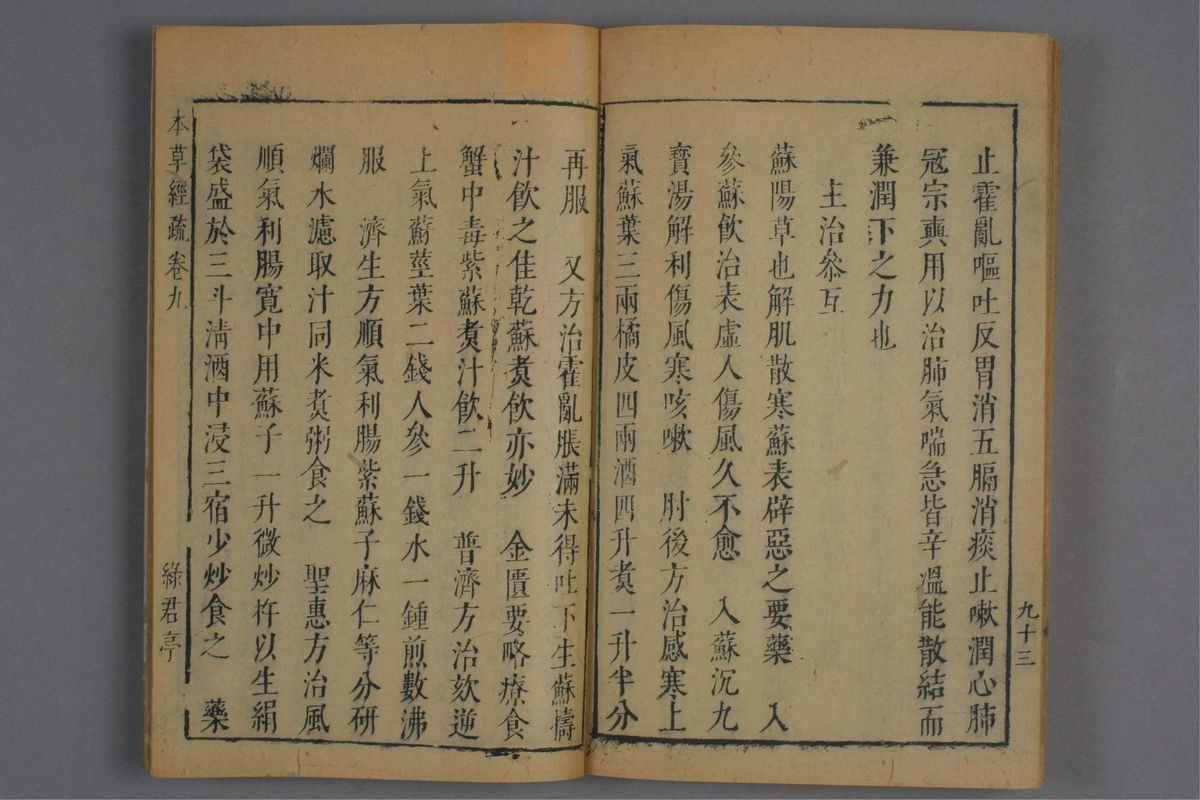 止霍亂嘔吐反胃消五膈消痰止嗽潤心肺
宼宗奭用以治肺氣喘急皆辛溫能散結而
兼潤下之力也
主治參互
蘇陽草也解肌散寒蘇表辟惡之要藥　入
參蘇飲治表虛人傷風久不愈　入蘇沉九
寶湯解利傷風寒咳嗽　肘後方治感寒上
氣蘇葉三兩橘皮四兩酒四升煑一升半分
九十三
再服　又方治霍亂脹滿未得吐下生蘇擣
汁飲之佳乾蘇煑飲亦妙　金匱要略療食
蟹中毒紫蘇煑汁飲二升　普濟方治欬逆
上氣蘇莖葉二錢人參一錢水一鍾煎數沸
服　濟生方順氣利腸紫蘇子麻仁等分研
爛水濾取汁同米煑粥食之　聖惠方治風
順氣利腸寬中用蘇子一升微炒杵以生絹
袋盛於三斗清酒中浸三宿少炒食之　藥
本草經疏卷九
綠君亭